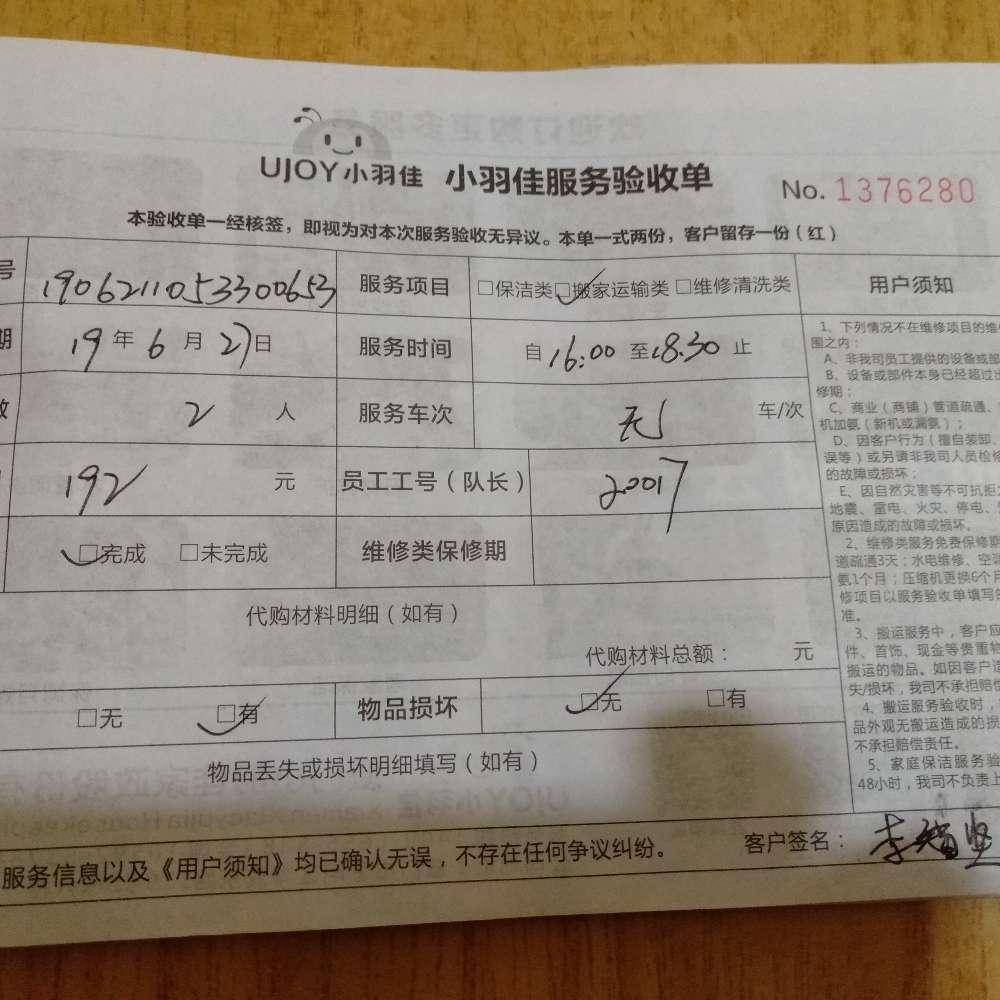 UJOY小羽佳 小羽佳服务验收单 No. 1376280
本验收单一经核签，即视为对本次服务验收无异议。本单一式两份，客户留存一份（红）
号 1906211053300653 服务项目 □保洁类 □搬家运输类 □维修清洗类 用户须知
期 19 年 6 月 27 日 服务时间 自 16:00 至 18.30 止
数 2 人 服务车次 无 车/次
192 元 员工工号（队长） 20017
□完成 □未完成 维修类保修期
代购材料明细（如有）
代购材料总额： 元
□无 □有 物品损坏 □无 □有
物品丢失或损坏明细填写（如有）
服务信息以及《用户须知》均已确认无误，不存在任何争议纠纷。 客户签名：
1、下列情况不在维修项目的维
围之内：
A、非我司员工提供的设备或部
B、设备或部件本身已经超过
修期；
C、商业（商铺）管道疏通、
机加氨（新机或漏氨）；
D、因客户行为（擅自装卸、
误等）或另请非我司人员检修
的故障或损坏；
E、因自然灾害等不可抗拒
地震、雷电、火灾、停电、
原因造成的故障或损坏。
2、维修类服务免费保修期
道疏通3天；水电维修、空
氨1个月；压缩机更换6个月
修项目以服务验收单填写
准。
3、搬运服务中，客户应
件、首饰、现金等贵重物
搬运的物品。如因客户
失/损坏，我司不承担赔偿
4、搬运服务验收时，
品外观无搬运造成的损
不承担赔偿责任。
5、家庭保洁服务验
48小时，我司不负责上